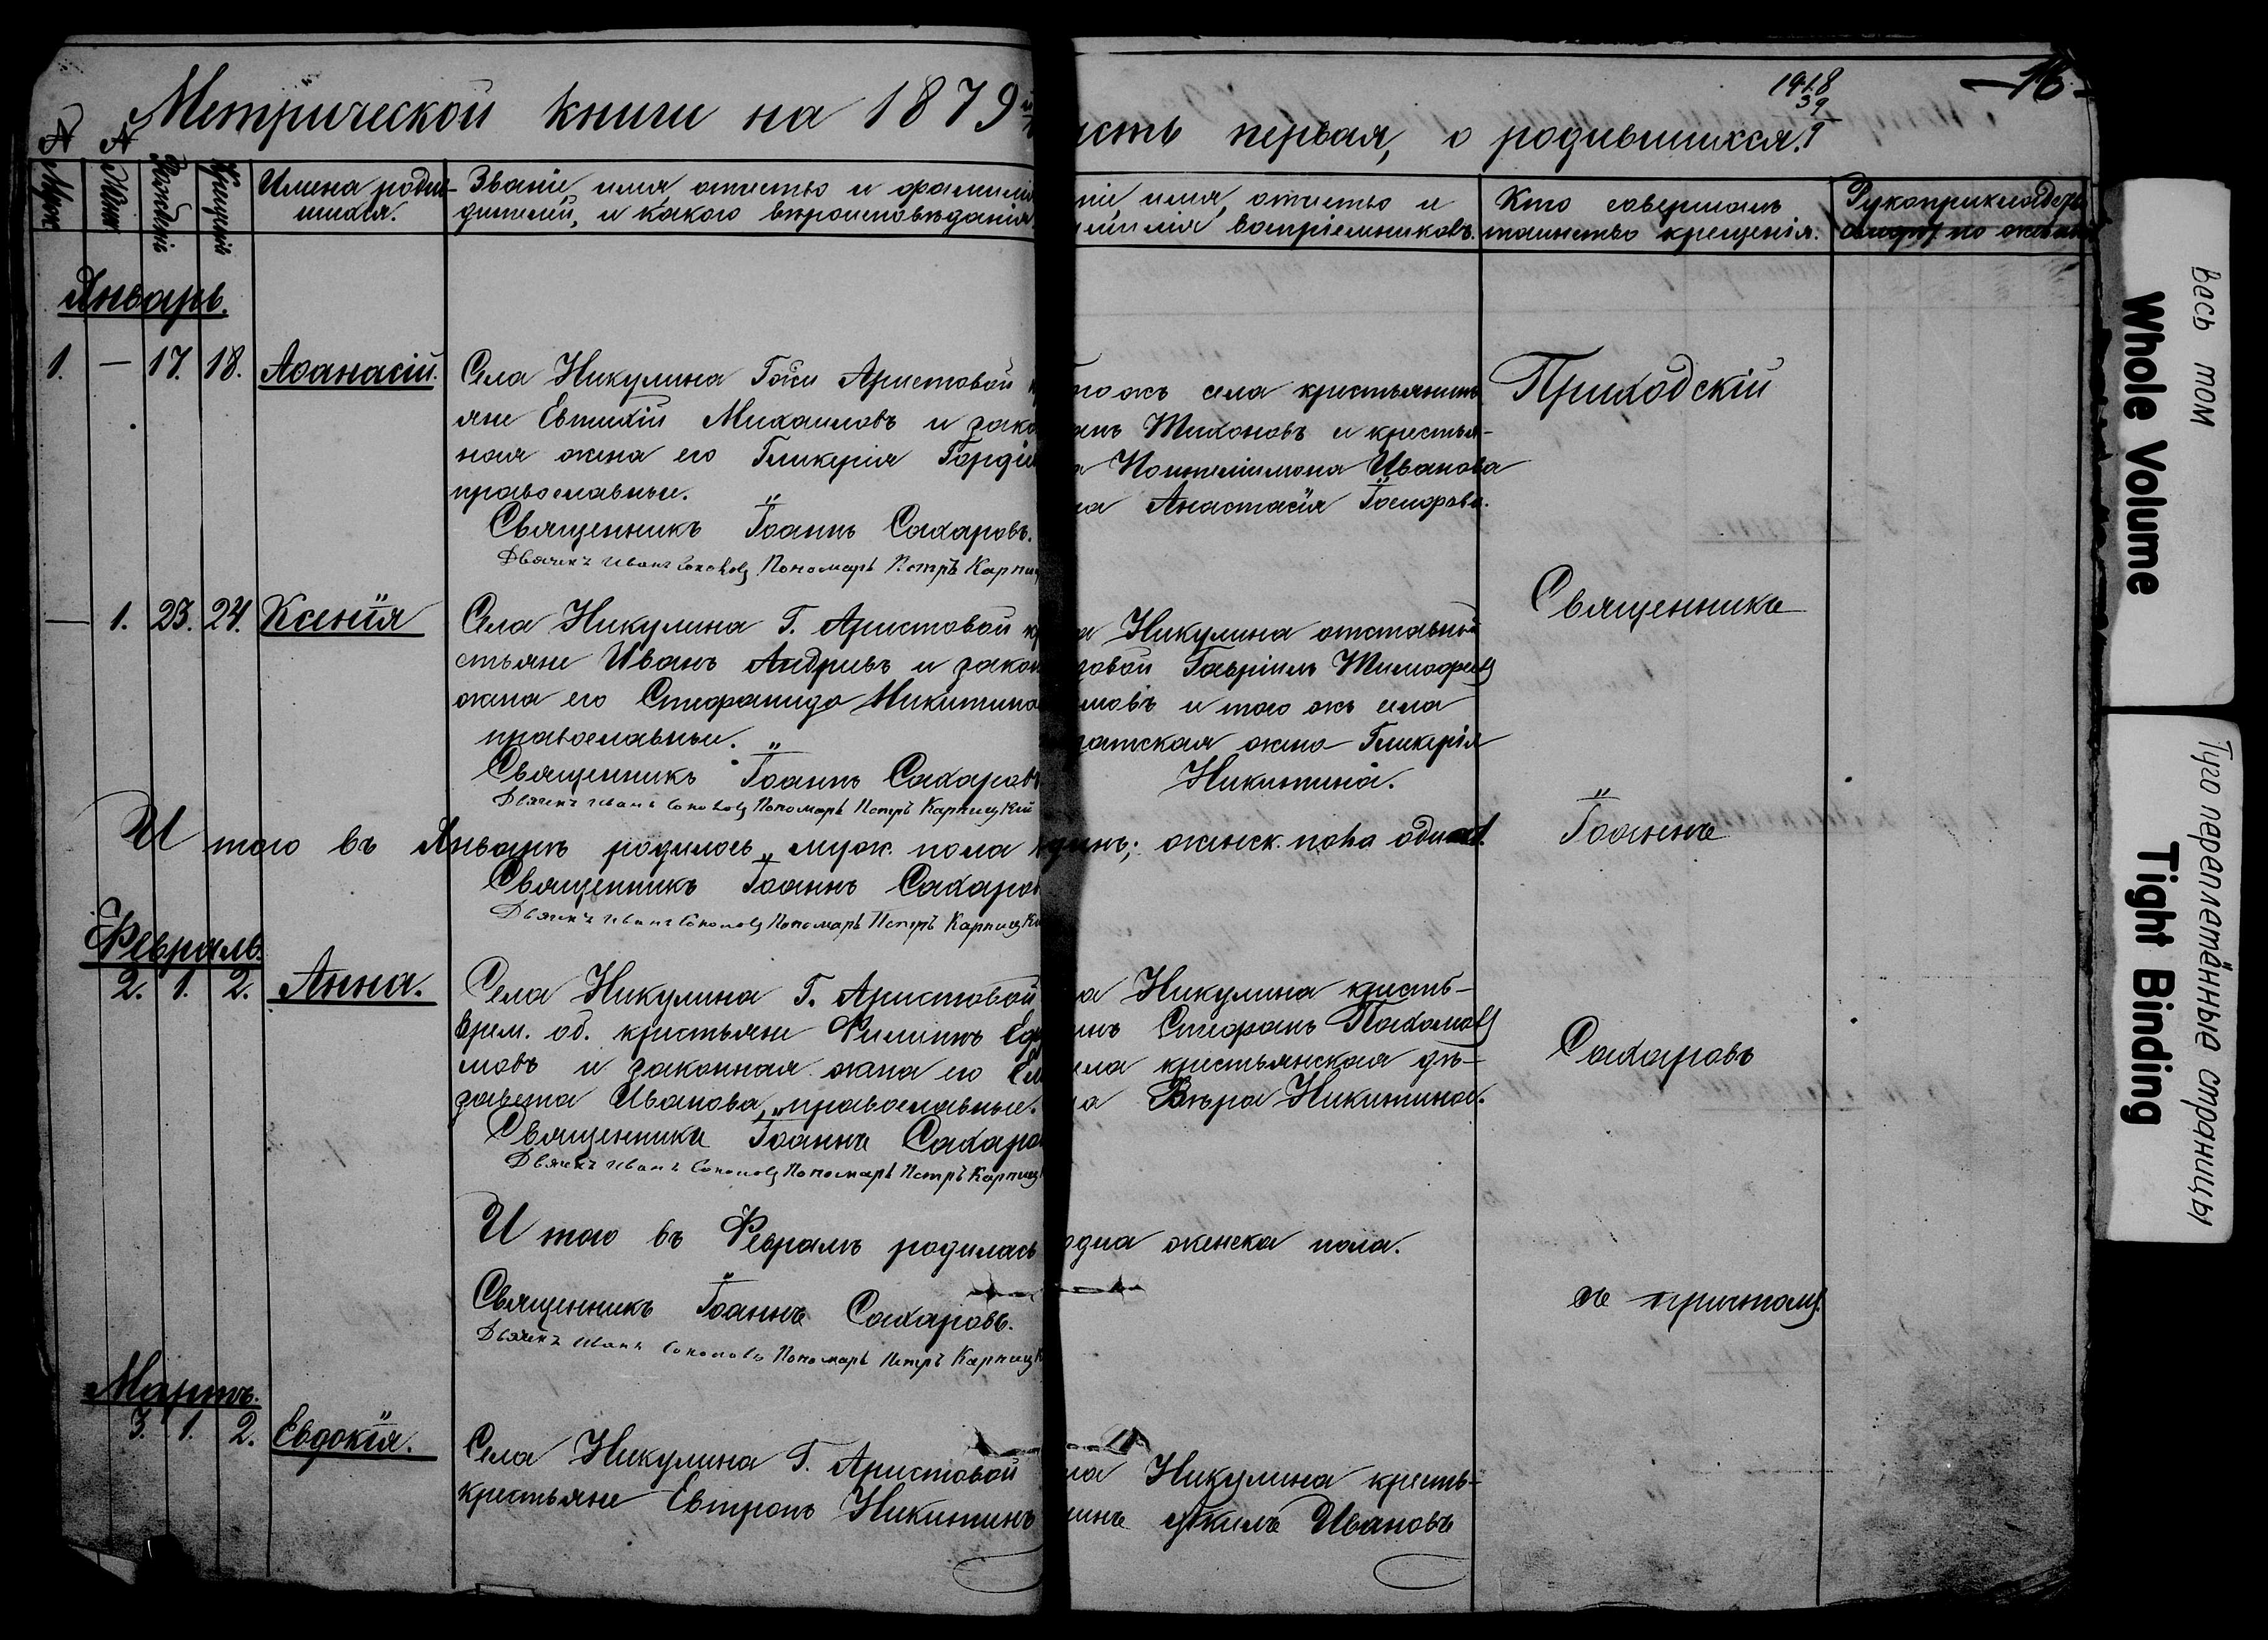 Метрической книги на 1879
асть первая, о родившихся.
1918
39
9
—16—
Муж.
Жен
Рожденiе
Крещенiе
Имена родив-
шихся.
Званiе, имя, отчество и фамилiя
дителей, и какого вѣроисповѣданiя
нiе имя, отчество и
амилiя воспрiемниковъ.
Кто совершалъ
таинство крещенiя.
Рукоприкладств
по
Январь.
1. — 17. 18. Аѳанасiй.
Села Никулина Г-жи Аристовой к
яне Евтихiй Михаиловъ и зако
ная жена его Гликерiя Гордiе
православные.
Священникъ Iоаннъ Сахаровъ.
Дьячекъ Иванъ Соколовъ Пономарь Петръ Карпиц
тогожъ села крестьянинъ
анъ Тихоновъ и крестья-
а Пантелiимона Иванова
на Анастасiя
Приходскiй
— 1. 23. 24. Ксенiя
Села Никулина Г. Аристовой кр
стьяне Иванъ Андреевъ и закон
жена его Стефанида Никитина
православные.
Священникъ Iоаннъ Сахаровъ
Дьячекъ Иванъ Соколовъ Пономарь Петръ Карпицкiй
а Никулина отставной
довой Гаврiилъ Тимофеевъ
мовъ и того жъ села
датская жена Гликерiя
Никитина.
Священникъ
И того въ Январѣ родилось муж. пола одинъ; женск. пола одна.
Священникъ Iоаннъ Сахаров
Дьячекъ Иванъ Соколовъ Пономарь Петръ Карпицкi
Iоаннъ
Февраль.
2. 1. 2. Анна.
Села Никулина Г. Аристовой
врем. об. крестьяне Филиппъ Еф
мовъ и законная жена его Ели
завета Иванова, православные.
Священникъ Iоаннъ Сахаро
Дьячекъ Иванъ Соколовъ Пономарь Петръ Карпиц
а Никулина кресть-
инъ Стефанъ Пахомовъ
ела крестьянская дѣ-
ца Вѣра Никитина.
Сахаровъ
И того въ Февралѣ родилась одна женска пола.
Священникъ Iоаннъ Сахаровъ.
Дьячекъ Иванъ Соколовъ Пономарь Петръ Карпицк
съ причтомъ.
Мартъ.
3. 1. 2. Евдокiя.
Села Никулина Г. Аристовой
крестьяне Евтропъ Никитинъ
ла Никулина кресть-
нинъ Ивановъ
весь том
Whole Volume
Туго переплетённые страницы
Tight Binding